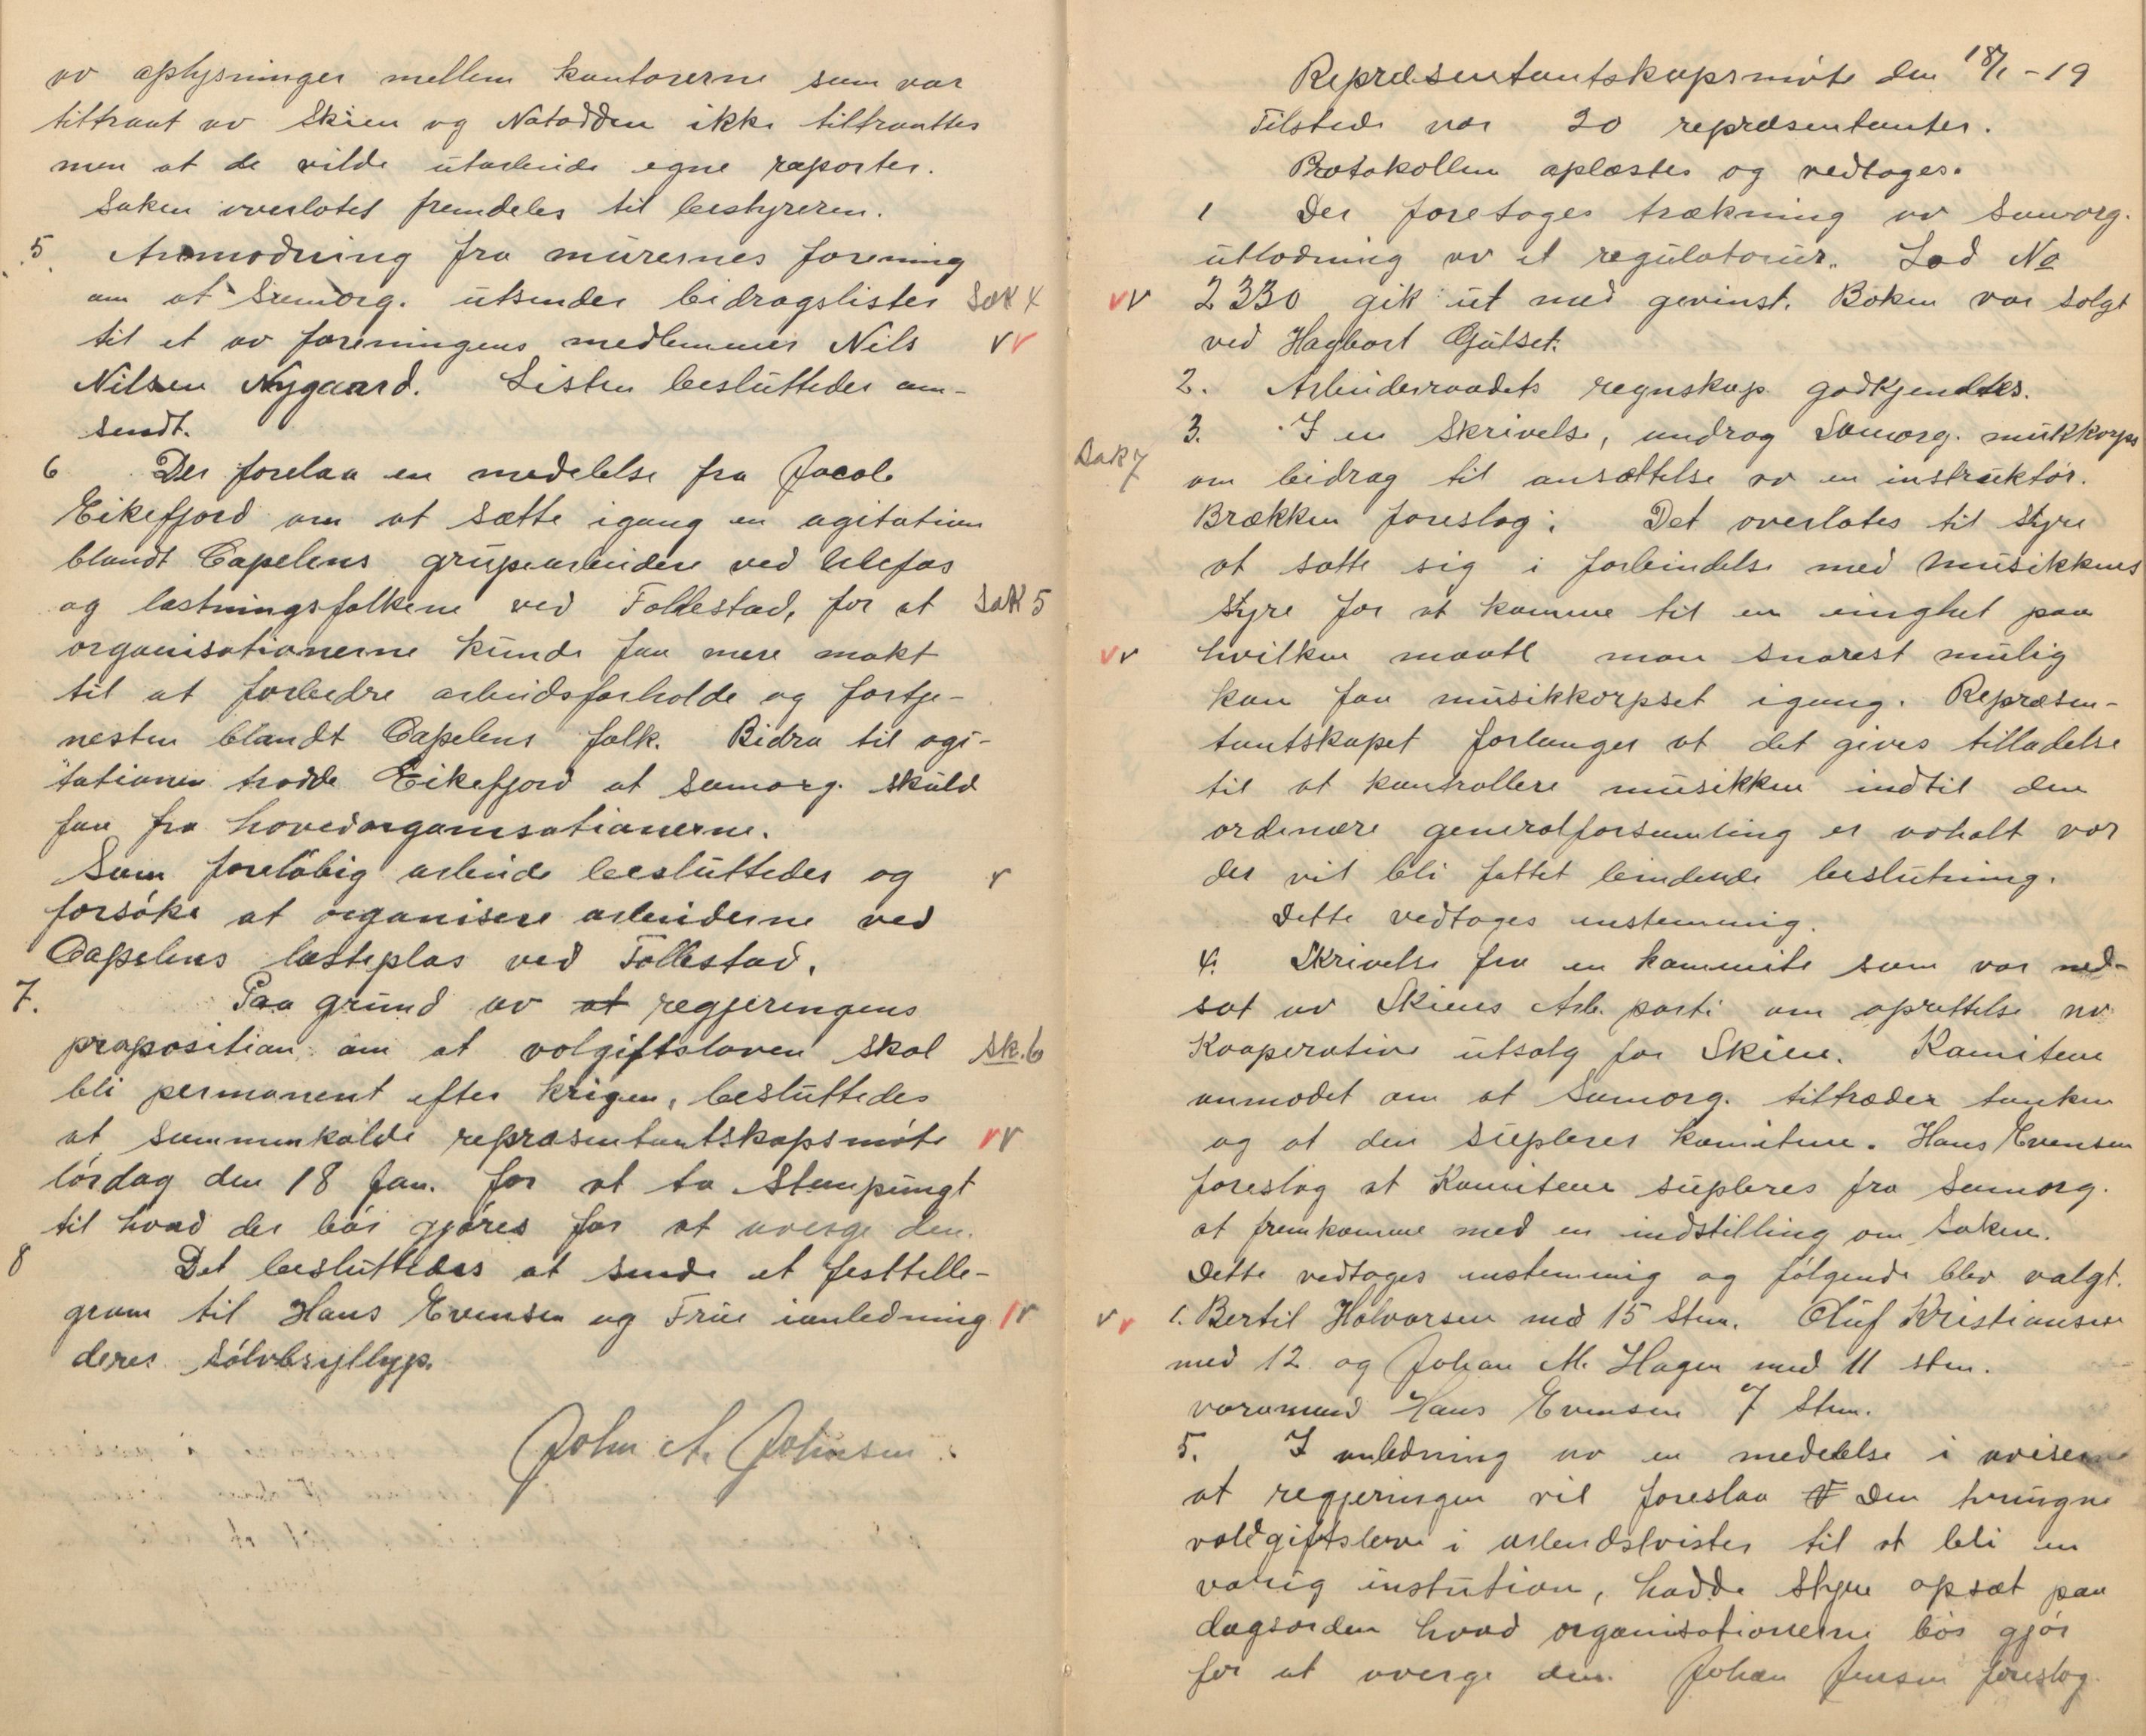 av oplysninger mellem kontorerne som var
tiltraat av Skien og Notodden ikke tiltraattes
men at de vilde utarbeide egne raporter.
Saken overlates fremdeles til bestyreren.
5. Anmodning fra murernes forening
om at Samorg. utsender bidragslister Sak 4
til et av foreningens medlemmer Nils
Nilsen Nygaard. Listen besluttedes om-
sendt.
6 Der forelaa en medelelse fra Jacob
Eikefjord om at sætte igang en agitation
blandt Capelens grupearbeidere ved Ulefos
og lastningsfolkene ved Follestad, for at Sak 5
organisationerne kunde faa mere makt
til at forbedre arbeidsforholde og fortje-
nesten blandt Capelens folk. Bidra til agi-
tationen trodde Eikefjord at samorg. skuld
faa fra hovedorganisationerne.
Som foreløbig arbeide besluttedes og
forsøke at organisere arbeiderne ved
Capelens lasteplas ved Follestad.
7. Paa grund av at regjeringens
proposition om at volgiftsloven skal Sk. 6
bli permanent efter krigen, besluttedes
at sammenkalde repræsentantskapsmøte
lørdag den 18 Jan. for at ta stenpungt
til hvad der bør gjøres for at averge den.
8 Det besluttedes at sende et festtelle-
gram til Hans Evensen og Frue ianledning
deres sølvbryllyp.
John A. Johnsen
Repræsentantskapsmøte den 18/1-19
Tilstede var 20 repræsentanter.
Protokollen oplæstes og vedtoges.
1 Der foretoges trækning av samorg.
utlodning av et regulatorur. Lod No
2330 gik ut med gevinst. Boken var solgt
ved Hagbart Gulset.
2. Arbeiderraadets regnskap godkjendtes.
3. I en Skrivelse, androg Samorg. mukkorps
Sak 7
om bidrag til ansættelse av en instruktør.
Brækken foreslog: Det overlates til Styre
at sætte sig i forbindelse med musikkens
Styre for at komme til en eneghet paa
hvilken maate man snarest mulig
kan faa musikkorpset igang. Repræsen-
tantskapet forlanger at det gives tilladelse
til at kontrollere musikken indtil den
ordinære generalforsamling er avholt vor
der vil bli fattet bindende beslutning.
Dette vedtoges enstemmig.
4. Skrivelse fra en kommite som var ned-
sat av Skiens Arb. parti om oprettelse av
Kooperative utsalg for Skien. Komiteen
anmodet om at Samorg. tiltræder tanken
og at den supleres komiteene. Hans Evensen
foreslog at Komiteen supleres fra samorg.
at fremkomme med en indstilling om saken.
Dette vedtoges enstemmig og følgende blev valgt.
1. Bertil Halvorsen med 15 Stem. Oluf Kristiansen
med 12 og Johan M. Hagen med 11 stem.
varamand Hans Evensen 7 Stem.
5. I anledning av en medelelse i aviserne
at regjeringen vil foreslaa Den tvungne
voldgiftslove i arbeidstvister til at bli en
varig instution, hadde Styre opsat paa
dagsorden hvad organisationerne bør gjør
for at averge den. Johan Jensen foreslog